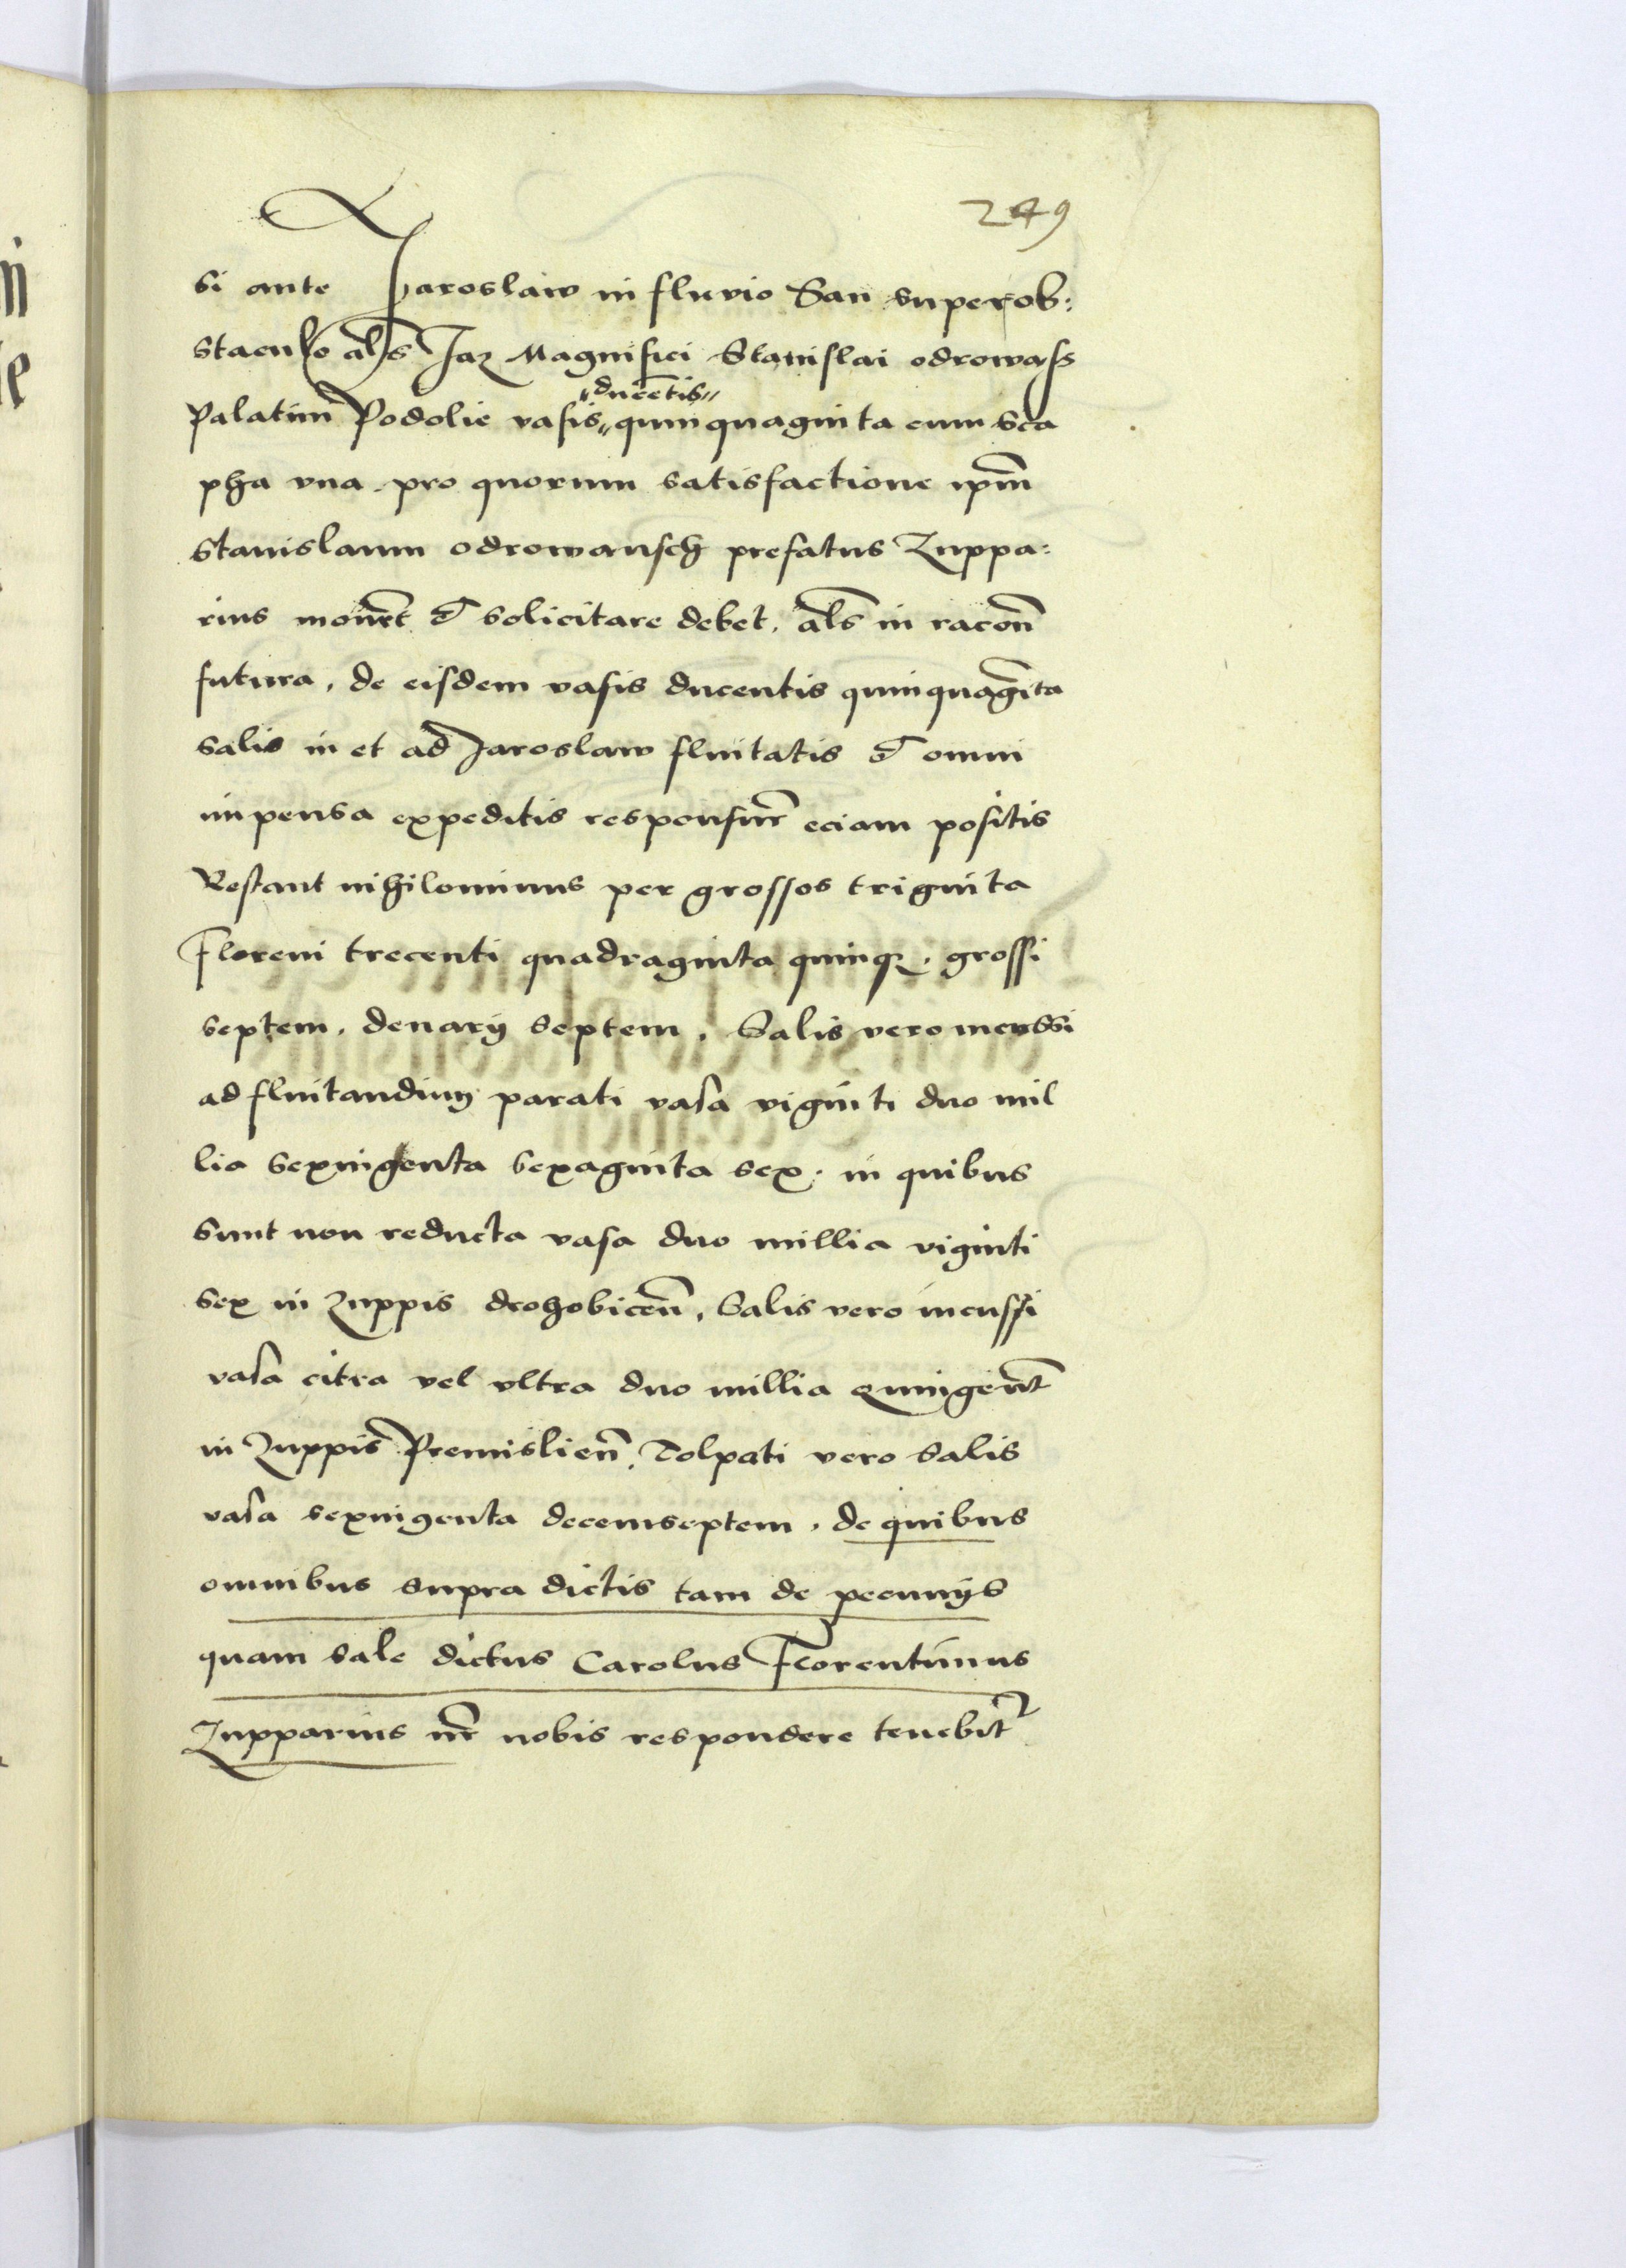 249
si ante Jaroslaw in fluvio San super ob:
staculo al̄s Jaz Magnifici Stanislai odrowasz
Palatini Podolie vasis "ducētis" quinquaginta cum sca
pha vna. pro quorum satisfactione ip̄m
Stanislaum odrowansch prefatus Zuppa:
rius monēt et solicitare debet. al̄s in racōn̄
futura, de eisdem vasis ducentis quinquagīta
salis in et ad Jaroslaw fluitatis et omni
inpensa expeditis responsur̄ eciam positis
Restant nihilominus per grossos triginta
Floreni trecenti quadraginta quinq3, grossi
septem, denarij septem, Salis vero menssi
ad fluitandum parati vasa viginti duo mil
lia sexingenta sexaginta sex. in quibus
sunt non reducta vasa duo millia viginti
sex in zuppis drohobicen̄, Salis vero menssi
vasa citra vel vltra duo millia quingent̄
in Zuppis Premislien̄, Tolpati vero salis
vasa sexingenta decemseptem, de quibus
omnibus supra dictis tam de pecunijs
quam sale dictus Carolus Florentinus
Zupparius nr̄ nobis respondere tenebit᷑